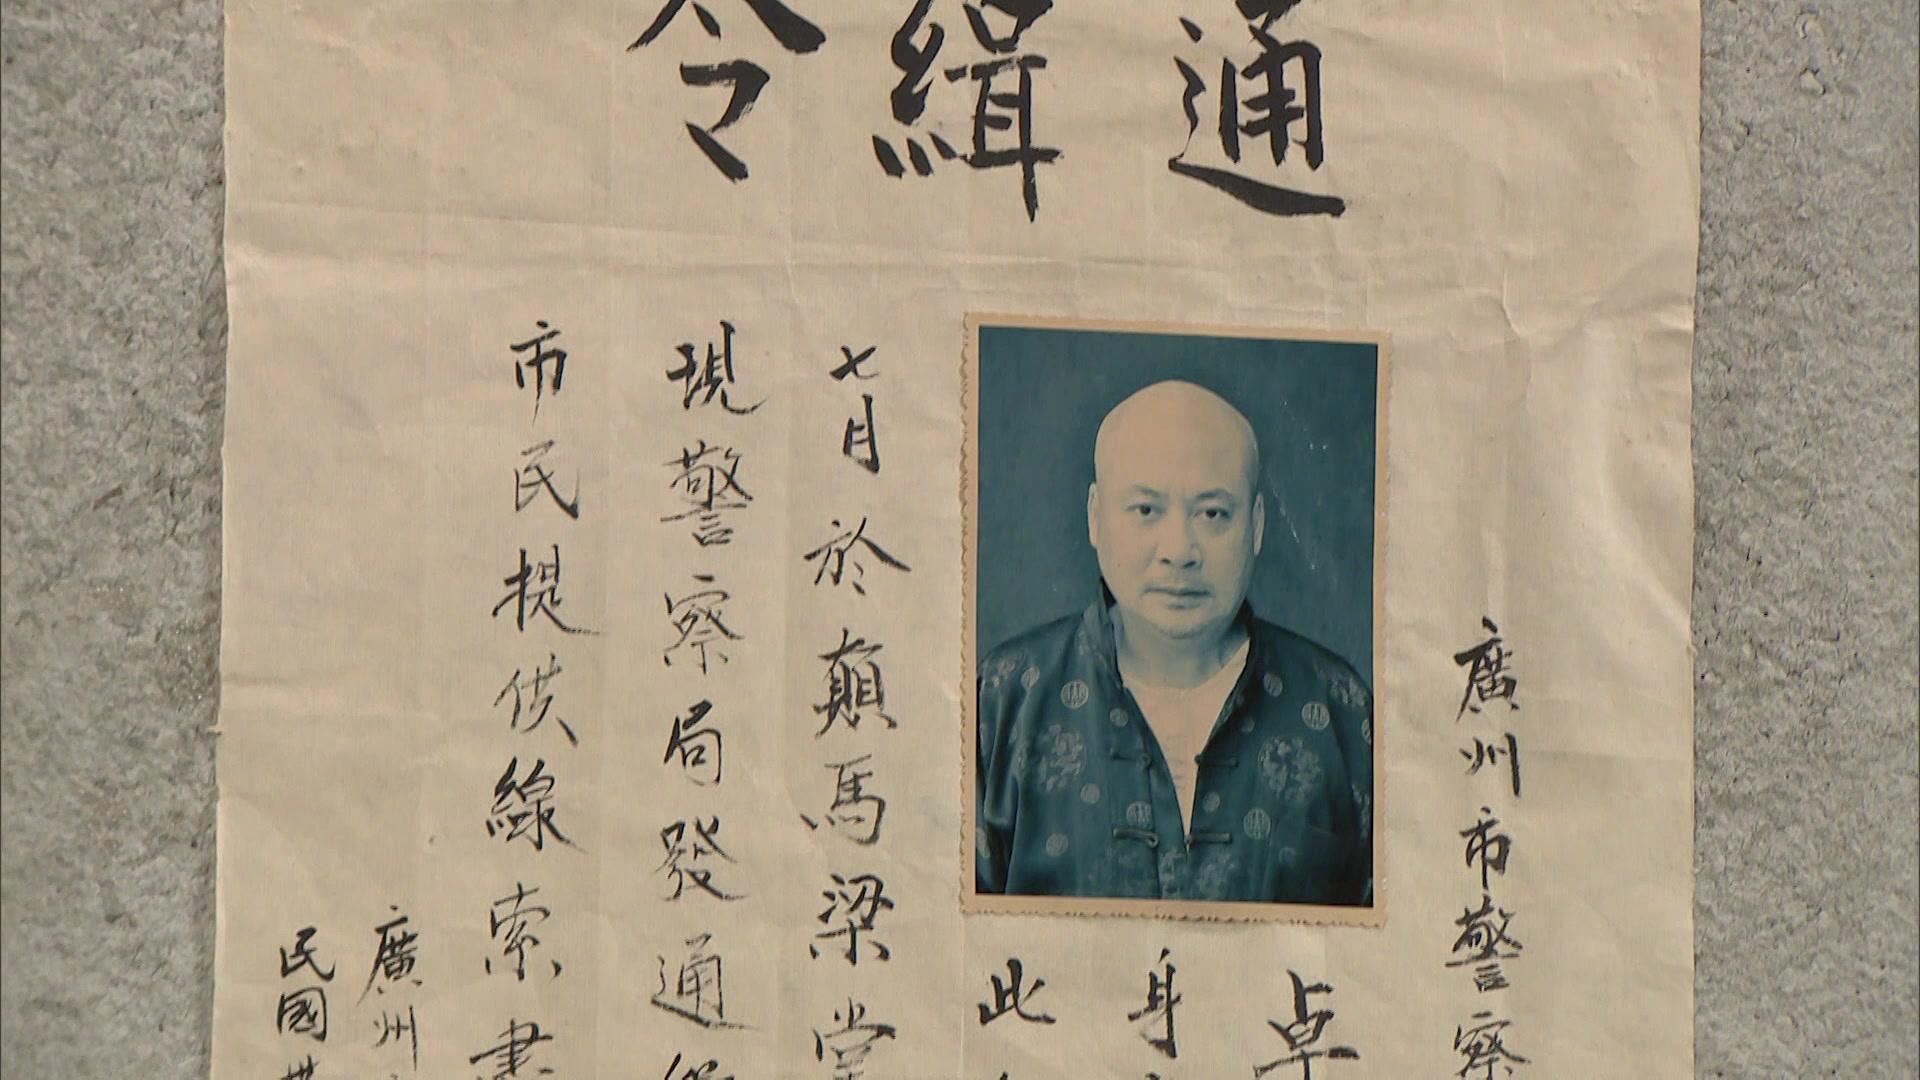 通緝令
廣州市警察
卓
身
此
七月於顛馬梁堂
現警察局發通緝
市民提供線索
廣州
民國